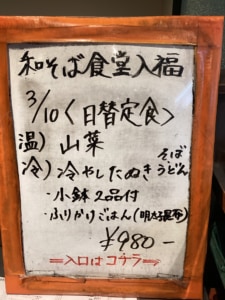 和そば食堂入福
3/10〈日替定食〉
温) 山菜
冷) 冷やしたぬき そば うどん
・小鉢2品付
・ふりかけごはん(明太昆布)
¥980-
=入口はコチラ=